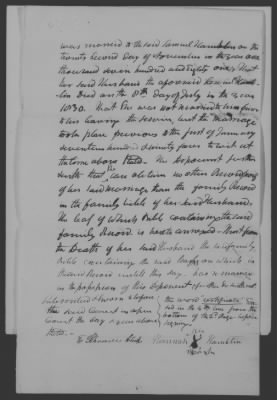 was married to the said Samuel Hamblin on the
twenty second day of November in the year one
thousand seven hundred and eighty one, that
her said Husband the aforesaid Samuel Hamb-
lin died on the 8th day of July in the year
1830. That she was not married to him prior
to his leaving the service but the marriage
took place previous to the first of January
seventeen hundred & ninety four to wit at
the time above stated. The Deponent further
saith that she can obtain no other Record of
of her said marriage than the family Record
in the family bible of her said Husband.
The leaf of which bible containing the said
family Record is hereto annexed. That from
the Death of her said Husband the said family
bible containing the said leaf on which is
the said Record untill this day has remained
in the possession of this Deponent
Subscribed & sworn to before
the said Court in open
Court the day & year above
stated.
Clerk
the word
in the line from the
bottom of the 2d page
Hannah Hamblin
her mark